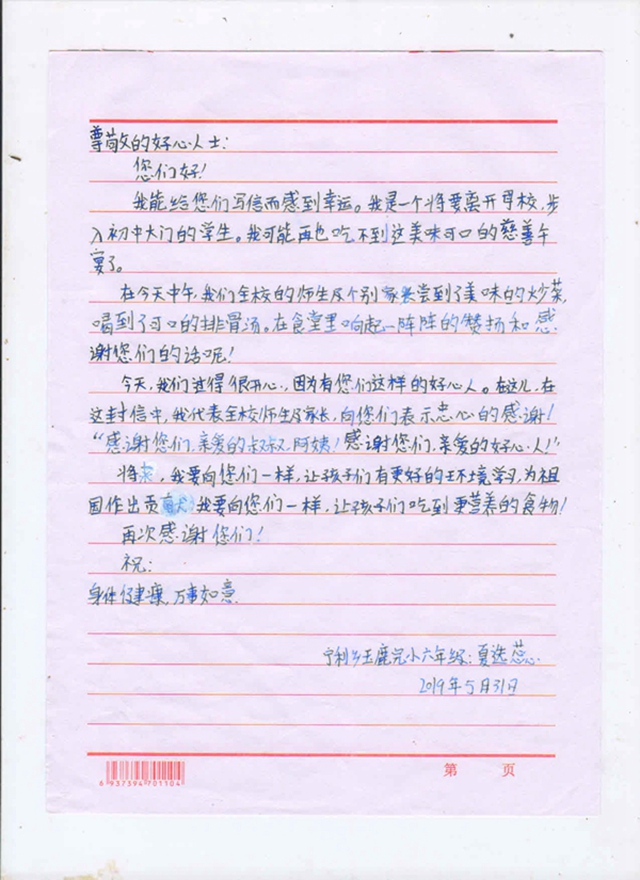 尊敬的好心人士：
您们好！
我能给您们写信而感到幸运。我是一个将要离开母校，步
入初中大门的学生。我可能再也吃不到这美味可口的慈善午
宴了。
在今天中午，我们全校的师生及个别家长尝到了美味的炒菜，
喝到了可口的排骨汤。在食堂里响起一阵阵的赞扬和感
谢您们的话呢！
今天，我们过得很开心，因为有您们这样的好心人。在这儿，在
这封信中，我代表全校师生及家长，向您们表示忠心的感谢！
“感谢您们，亲爱的叔叔，阿姨！感谢您们，亲爱的好心人！”
将来，我要向您们一样，让孩子们有更好的环境学习，为祖
国作出贡献！我要向您们一样，让孩子们吃到更营养的食物！
再次感谢您们！
祝：
身体健康，万事如意
宁利乡玉鹿完小六年级：夏选蕊
2019年5月31日
6 937394 701104
第 页